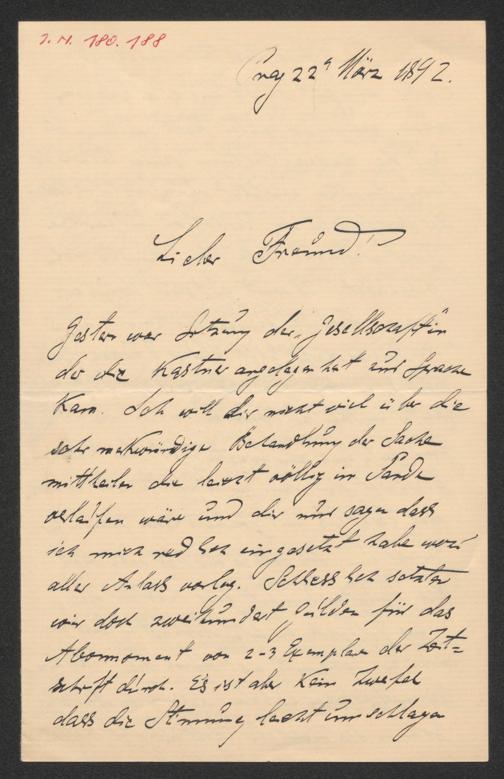 J.N. 180.188
Prag 22n März 1892.
Lieber Freund!
Gestern war Sitzung der Gesellschaft in
der die Kastner angelegenheit zur Sprache
kam. Ich will dir nicht viel über die
sehr merkwürdige Behandlung der Sache
mittheilen die leicht völlig im Sande
verlaufen wäre und dir nur sagen dass
ich mich redlich eingesetzt habe wozu
aller Anlass vorlag. Schliesslich setzten
wir doch zweihundert Gulden für das
Abonnement von 2-3 Exemplare der Zeit=
schrift durch. Es ist aber kein Zweifel
dass die Stimmung leicht umschlagen